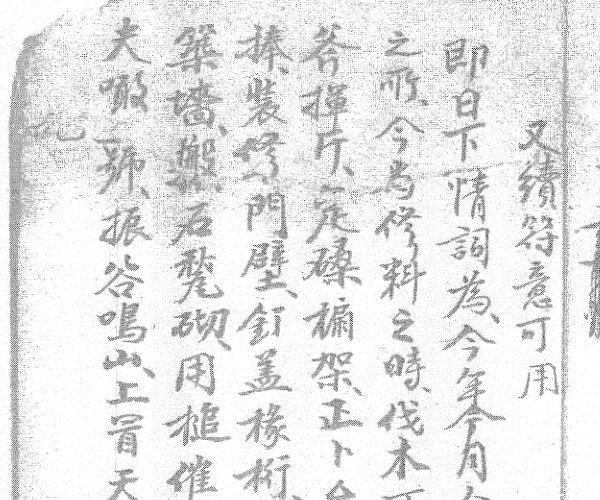 又續符意可用
即日下情詞為今年今月
之所今為修料之時伐木
斧揮斤定磉楄架正卜
捧裝修門壁釘蓋椽桁
築墻搬石甃砌用槌催
夫喊號振谷鳴山上冒天